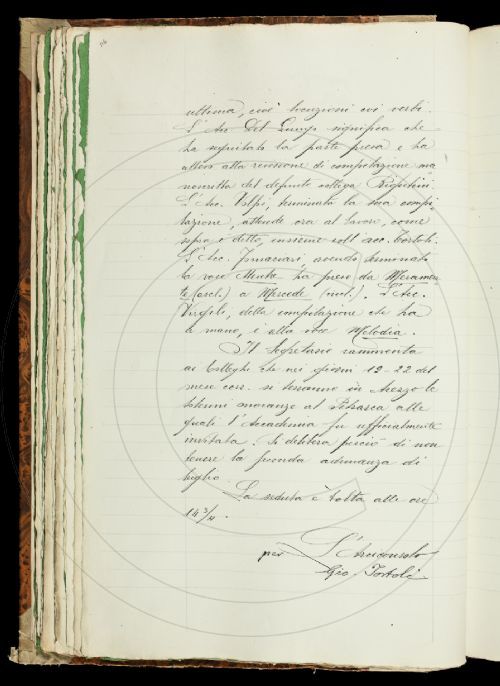 ultima, cioè locuzioni coi verbi.
L'Acc. Del Lungo significa che
ha seguitato la parte presa e ha
atteso alla revisione di compilazione ma
noscritta del defunto collega Rigutini.
L'Acc. Volpi, terminata la sua compi
lazione, attende ora al lavoro, come
sopra è detto, insieme coll'Acc. Tortoli.
L'Acc. Fornaciari, avendo terminato
la voce Menta ha preso da Meramen-
te (escl.) a Mercede (incl.). L'Acc.
Virgili, della compilazione che ha
a mano, è alla voce Melodia.
Il Segretario rammenta
ai Colleghi che nei giorni 19-22 del
mese corr. si terranno in Arezzo le
solenni onoranze al Petrarca alle
quali l'Accademia fu ufficialmente
invitata. Si delibera perciò di non
tenere la seconda adunanza di
luglio.
La seduta è tolta alle ore
14 3/4.
per L'Arciconsolo
Gio. Tortoli